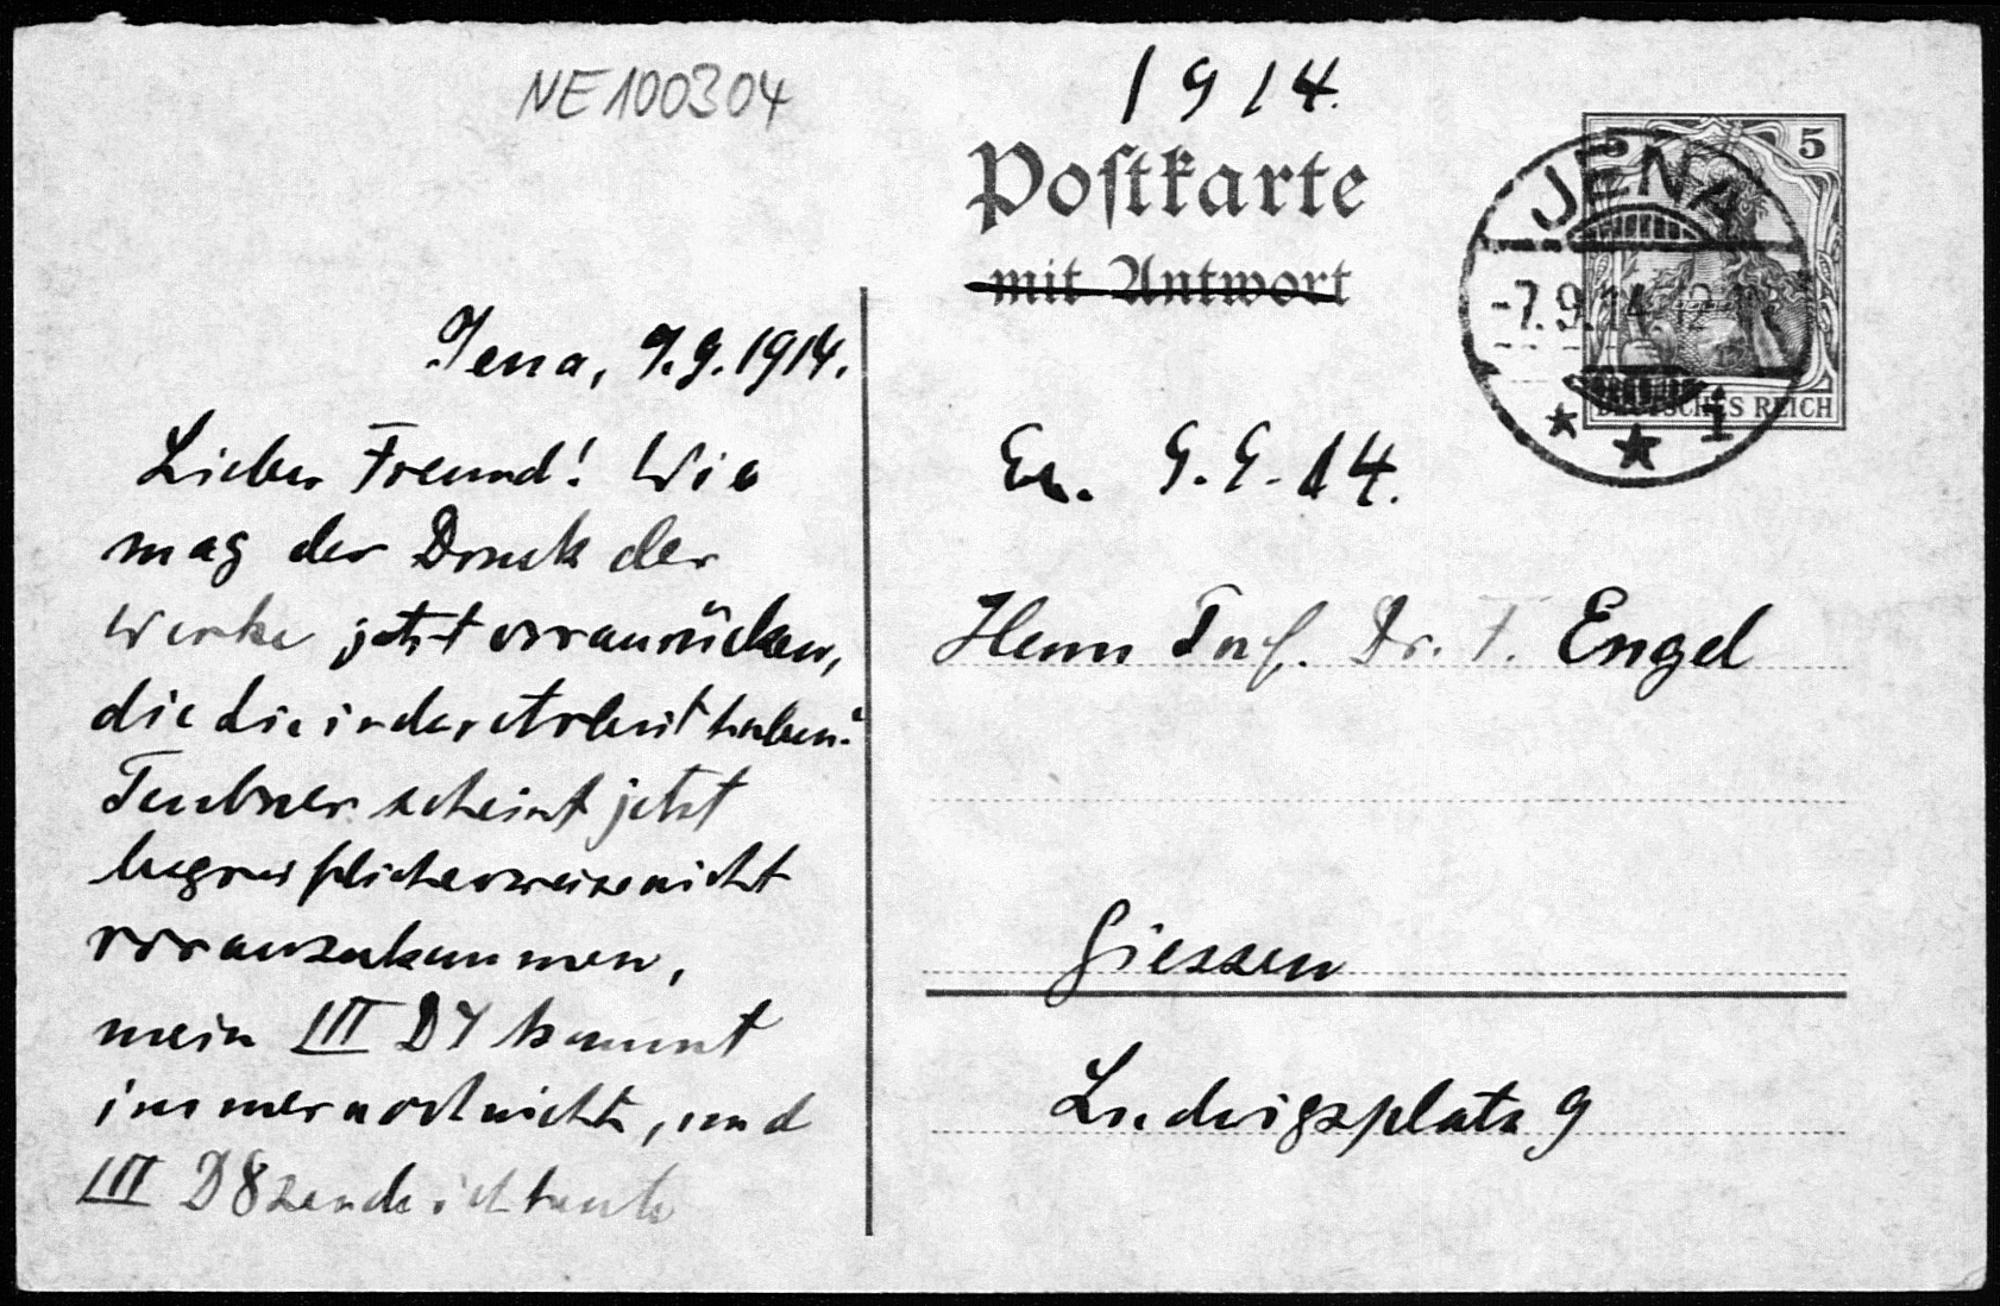 NE100304
1914.
Postkarte
mit Antwort
5
JENA
-7.9.14. 12-1
DEUTSCHES REICH
* * 1
Jena, 7.9.1914.
Lieber Freund! Wie
mag der Druck der
Werke jetzt voranrücken,
die Sie in der Arbeit haben?
Teubner scheint jetzt
begreiflicherweise nicht
voranzukommen,
mein III D7 kommt
immer noch nicht, und
III D8 sende ich heute
9.9.14.
Herrn Prof. Dr. F. Engel
Giessen
Ludwigsplatz 9